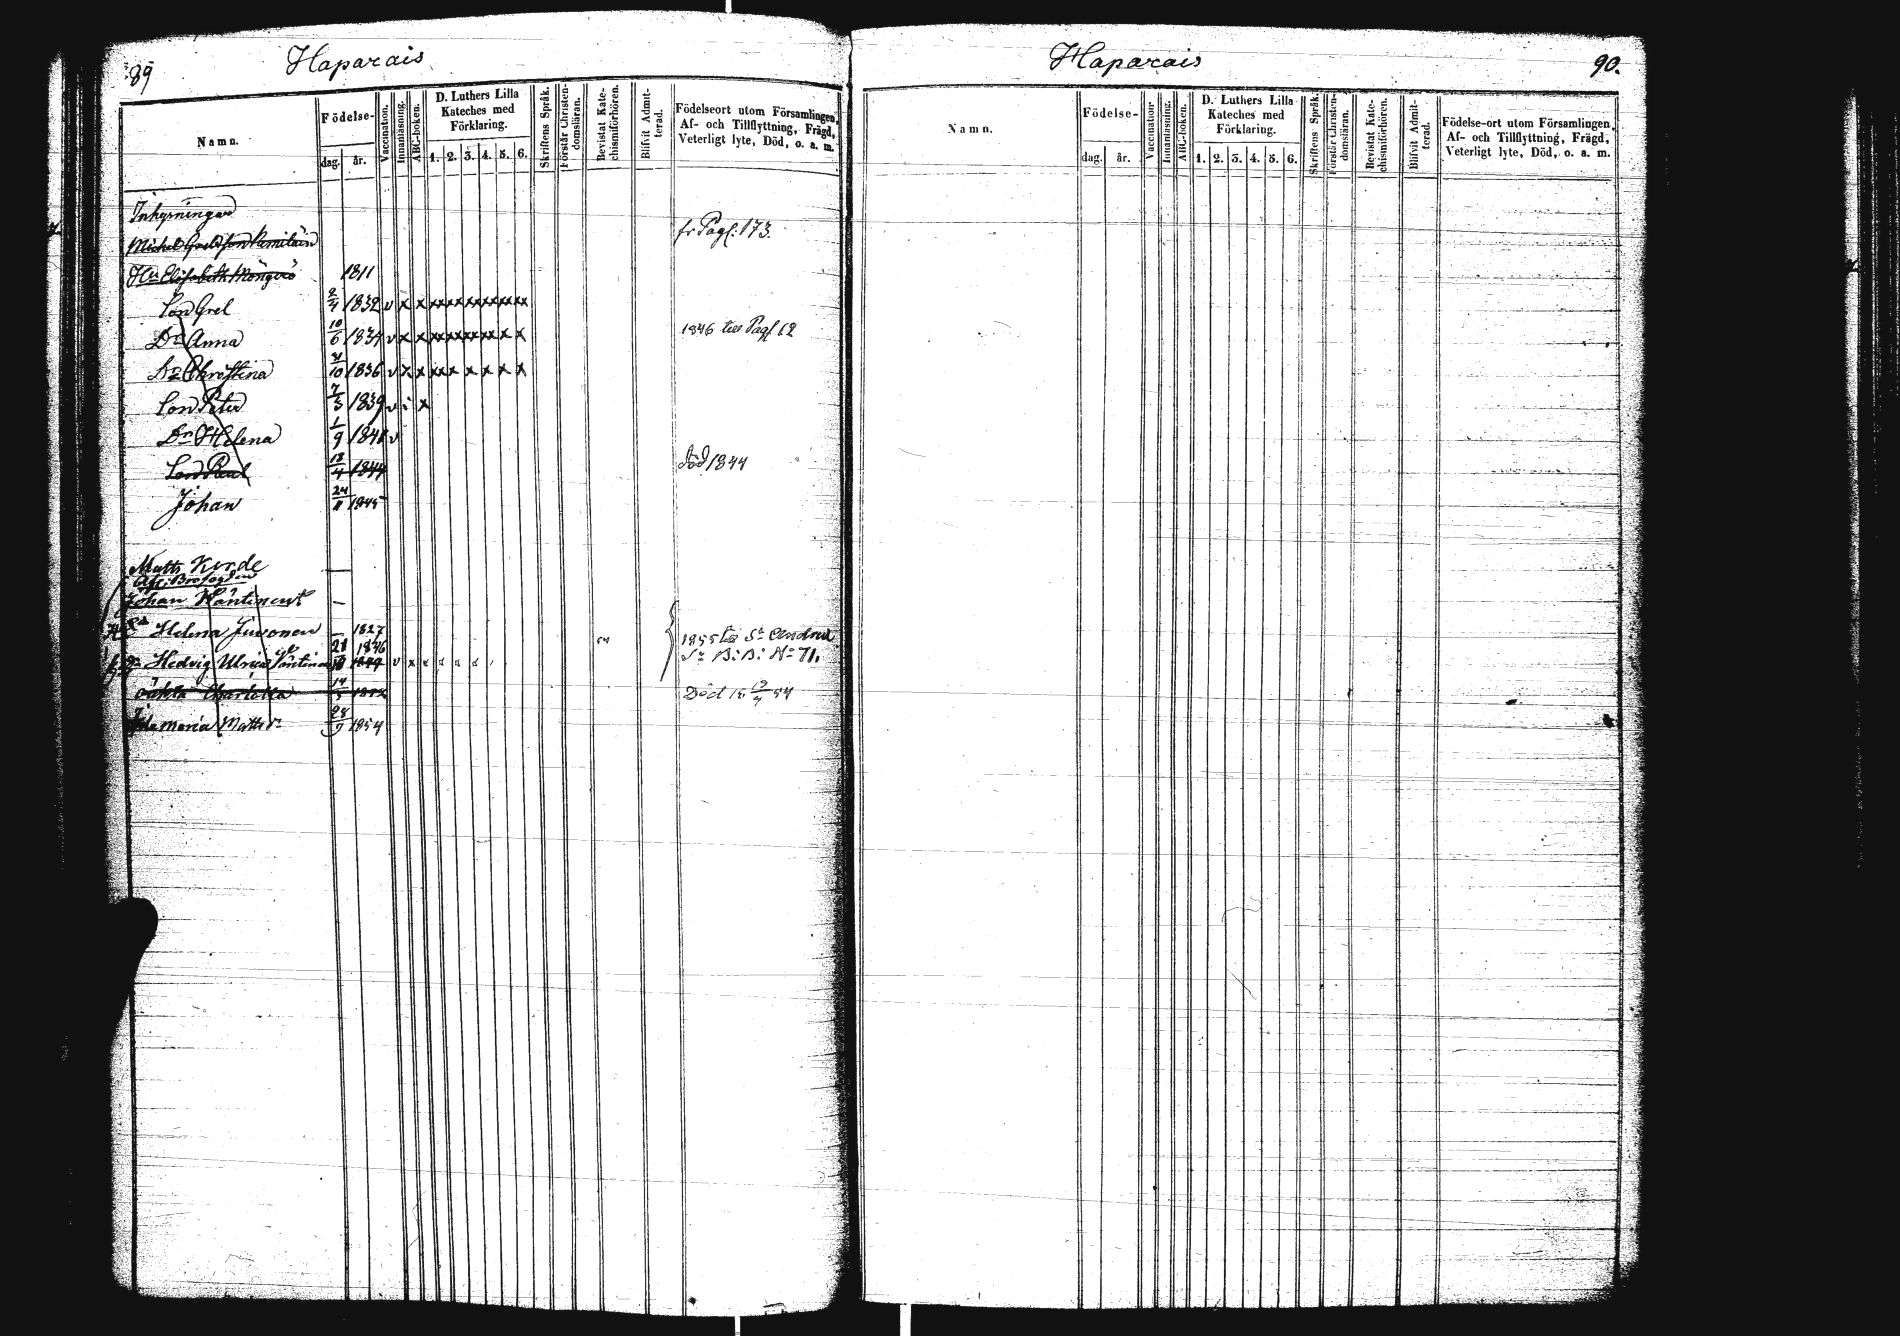 89
Haparais
Namn.
Födelse-
dag. år.
Vaccination.
Innanläsning.
ABC-boken.
D. Luthers Lilla
Kateches med
Förklaring.
1. 2. 3. 4. 5. 6.
Skriftens Språk.
Förstår Christen-
domsläran.
Bevistat Kate-
chismiförhören.
Blifvit Admit-
terad.
Födelseort utom Församlingen,
Af- och Tillflyttning, Frägd,
Veterligt lyte, Död, o. a. m.
Inhysningar
Michel fr Pag: 173.
Hu Elisabeth 1811
Son Grel 2/4 1832 v x x xxxxxxxxxxxx
Dr Anna 10/6 1834 v x x xxxxxxxx x x 1846 till Pag 12
Dr Christina 10 1836 v x x xxx x x x x
Son Peter 7/3 1839 v i x
Dr Helena 1/9 1841 v
Son Paul 13/4 1844 död 1844
Johan 24 1845
Matts —
Johan —
Helena Juvonen — 1827 1855
Hedvig Ulrica 1846 v x No 71.
Charlotta 14 Död
Maria Matts dr 28/9 1854
Haparais
90.
Namn.
Födelse-
dag. år.
Vaccination
Innanläsning.
ABC-boken.
D. Luthers Lilla
Kateches med
Förklaring.
1. 2. 3. 4. 5. 6.
Skriftens Språk.
Förstår Christen-
domsläran.
Bevistat Kate-
chismiförhören.
Blifvit Admit-
terad.
Födelse-ort utom Församlingen,
Af- och Tillflyttning, Frägd,
Veterligt lyte, Död, o. a. m.